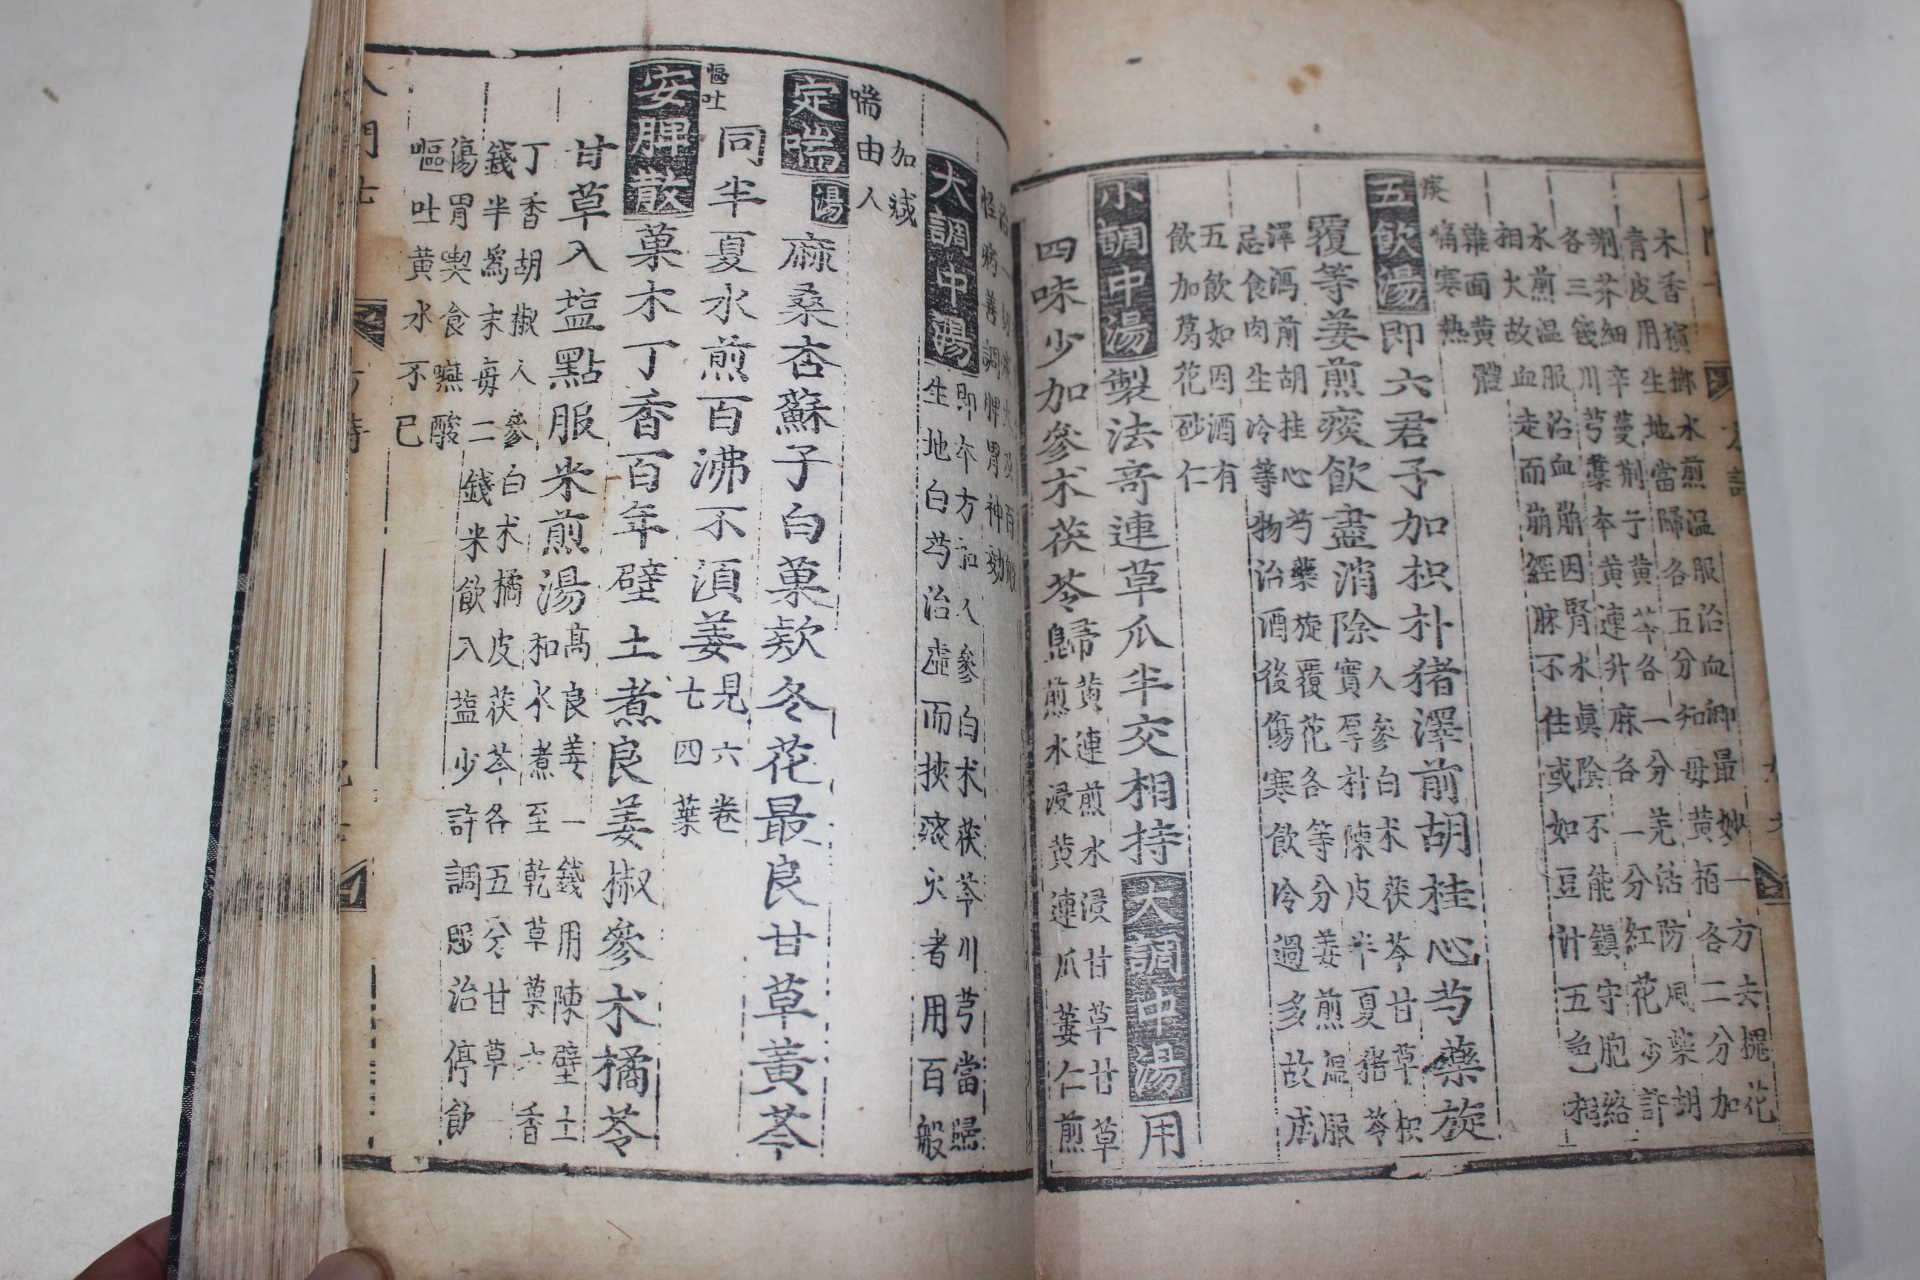 木香檳榔水煎温服治血卿最妙一方去擺花
青皮用生地當歸各五分知母黄栢各二分加
荆芥細辛蔓荆子黄芩各一分羌活防風藁胡
各三錢川芎藁本黄連升麻各一分紅花少許
水煎温服治血崩因腎水真陰不能鎮守胞絡
相火故血走而崩經脉不住或如豆汁五色相
雜面黄體
痛寒熱
痰
五飲湯即六君子加枳朴猪澤前胡桂心芍藥旋
覆等姜煎痰飲盡消除人參白朮茯苓甘草枳
實厚朴陳皮半夏猪苓
澤瀉前胡桂心芍藥旋覆花各等分姜煎温服
忌食肉生冷等物治酒後傷寒飲冷過多故成
五飲如因酒有
飲加葛花砂仁
小調中湯製法奇連草瓜半交相持大調中湯用
四味少加參朮茯苓歸黄連煎水浸甘草甘草
煎水浸黄連瓜蔞仁煎
怪病善調脾胃神効
大調中湯即本方加人參白朮茯苓川芎當歸
生地白芍治虚而挾痰火者用百般
加減
由人
喘
定喘湯麻桑杏蘇子白菓欵冬花最良甘草黃芩
同半夏水煎百沸不湏姜見六卷
七四葉
嘔吐
安脾散菓木丁香百年壁土煮良姜椒參朮橘苓
甘草入塩點服米煎湯高良姜一錢用陳壁土
和水煮至乾草菓六香
丁香胡椒人參白朮橘皮茯苓各五分甘草一
錢半爲末每二錢米飲入塩少許調服治停飲
傷胃喫食嚥酸
嘔吐黄水不已